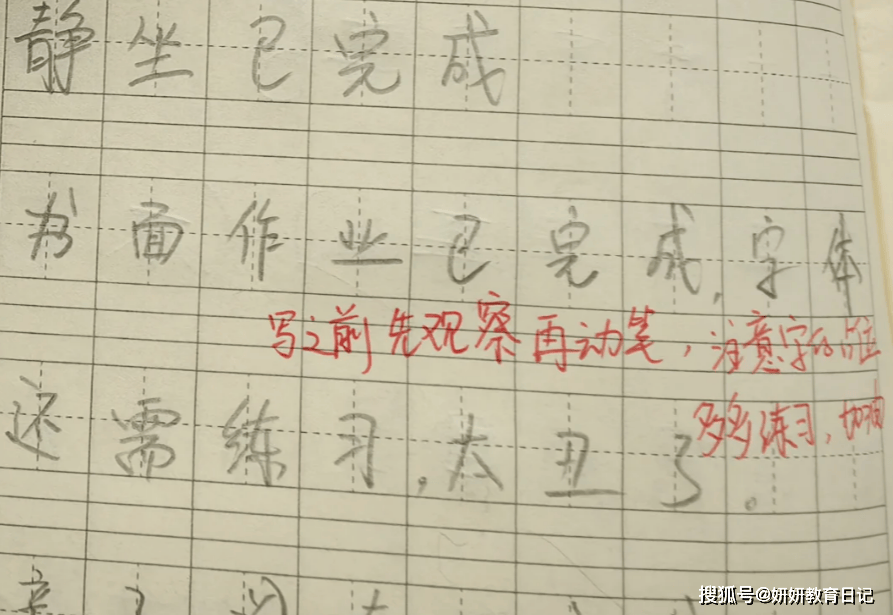 静坐已完成
书面作业已完成,字体
写之前先观察再动笔,注意字的占位
还需练习,太丑了。
多多练习,加油
搜狐号@妍妍教育日记